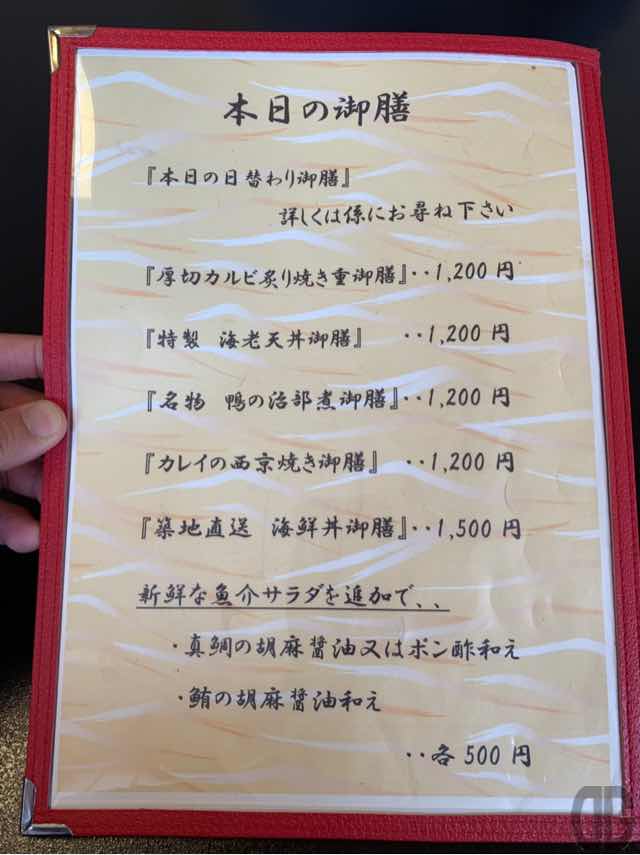 本日の御膳
『本日の日替わり御膳』
詳しくは係にお尋ね下さい
『厚切カルビ炙り焼き重御膳』‥1,200円
『特製 海老天丼御膳』 ‥1,200円
『名物 鴨の治部煮御膳』‥1,200円
『カレイの西京焼き御膳』 ‥1,200円
『築地直送 海鮮丼御膳』‥1,500円
新鮮な魚介サラダを追加で、、
・真鯛の胡麻醤油又はポン酢和え
・鮪の胡麻醤油和え
‥各500円